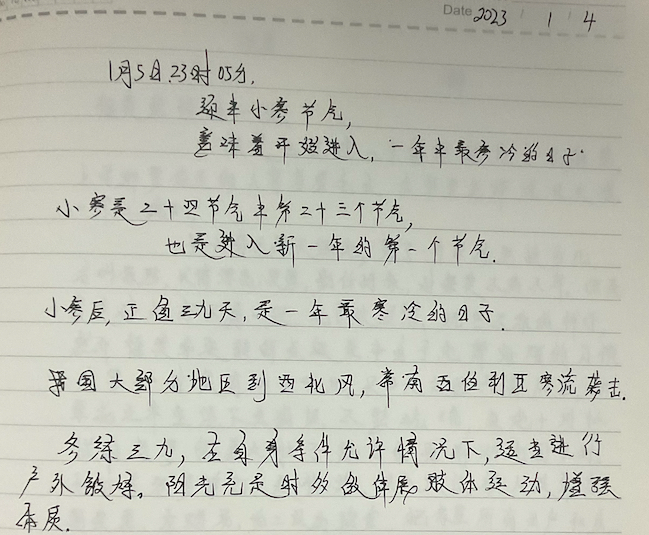 Date 2023 1 4
1月5日.23时05分,
迎来小寒节气,
意味着开始进入,一年中最寒冷的日子.
小寒是二十四节气中第二十三个节气,
也是进入新一年的第一个节气.
小寒后,正值三九天,是一年最寒冷的日子.
我国大部分地区到西北风,常有西伯利亚寒流袭击.
冬练三九,在自身条件允许情况下,适当进行
户外锻炼。阳光充足时多做伸展肢体运动,增强
体质.